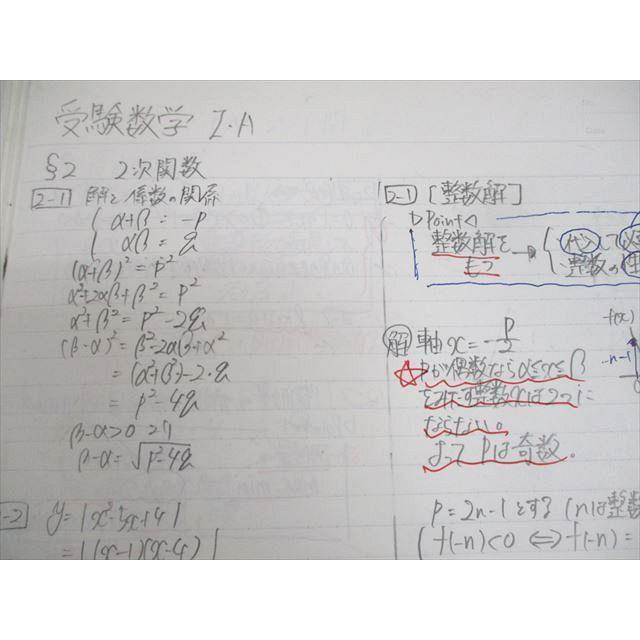 受験数学 I・A
§2 2次関数
2-1 解と係数の関係
{ α+β = -p
{ αβ = q
(α+β)² = p²
α²+2αβ+β² = p²
α²+β² = p²-2q
(β-α)² = β²-2αβ+α²
= (α²+β²)-2・q
= p²-4q
β-α>0 より
β-α = √p²-4q
-2 y = |x²-5x+4|
= |(x-1)(x-4)|
2-1 [整数解]
▷Point◁
整数解を
もつ → { 代入して
整数の
f(x)
解 軸 x = -p/2
-n-1
☆ pが偶数ならα≤x≤β
をみたす整数xは2つに
ならない。
よって pは奇数。
p = 2n-1 とする (nは整数
( f(-n)<0 ⇔ f(-n) =